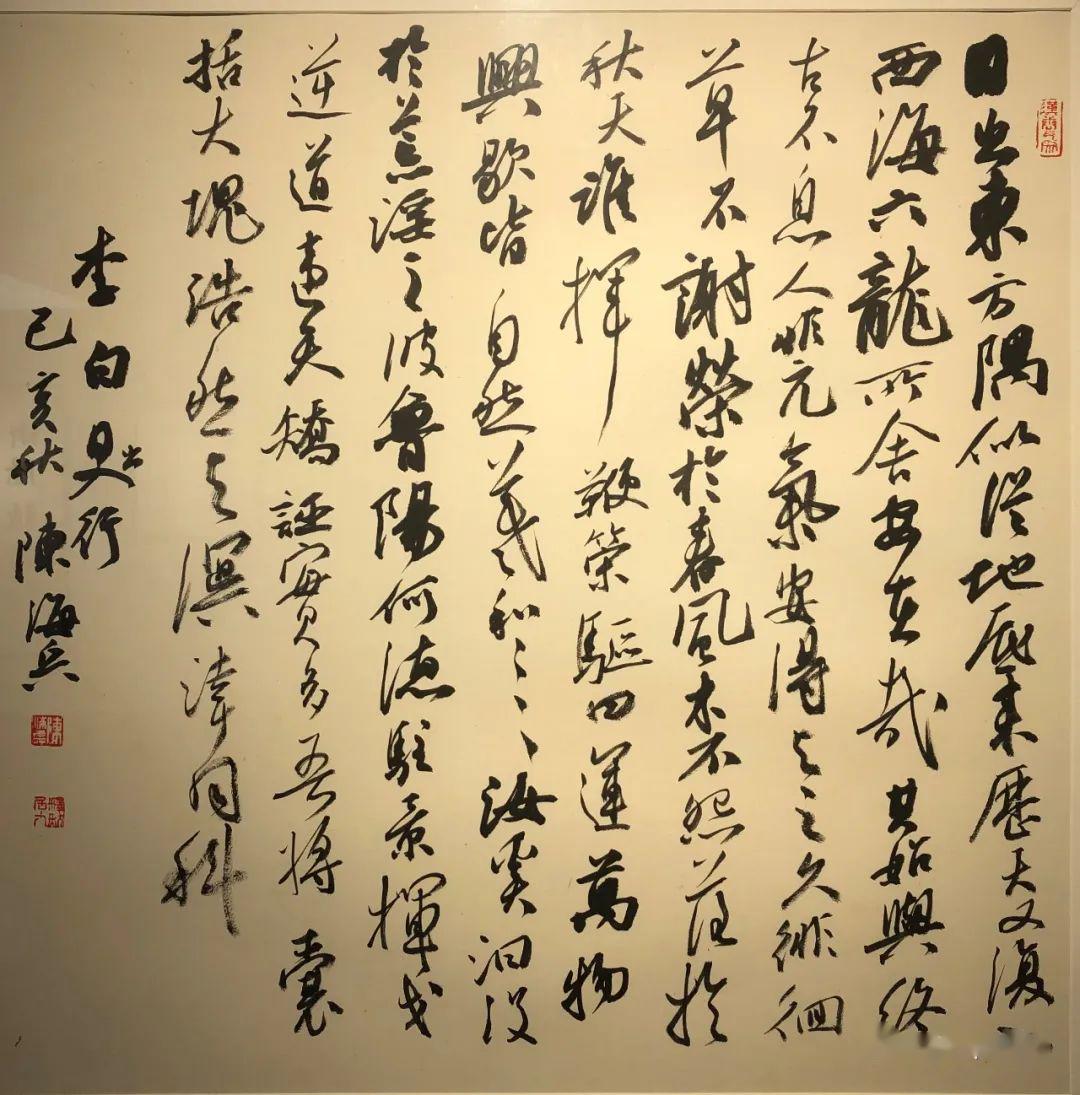 日出東方隅似從地底來歷天又復
西海六龍所舍安在哉其始與終
古不息人非元氣安得与之久徘徊
草不謝榮於春風木不怨落於
秋天誰揮鞭策驅四運萬物
興歇皆自然羲和〻〻汝奚汩没
於荒淫之波魯陽何德駐景揮戈
逆道違天矯誣實多吾將囊
括大塊浩然与溟涬同科
李白日出行
己亥秋陳海兵